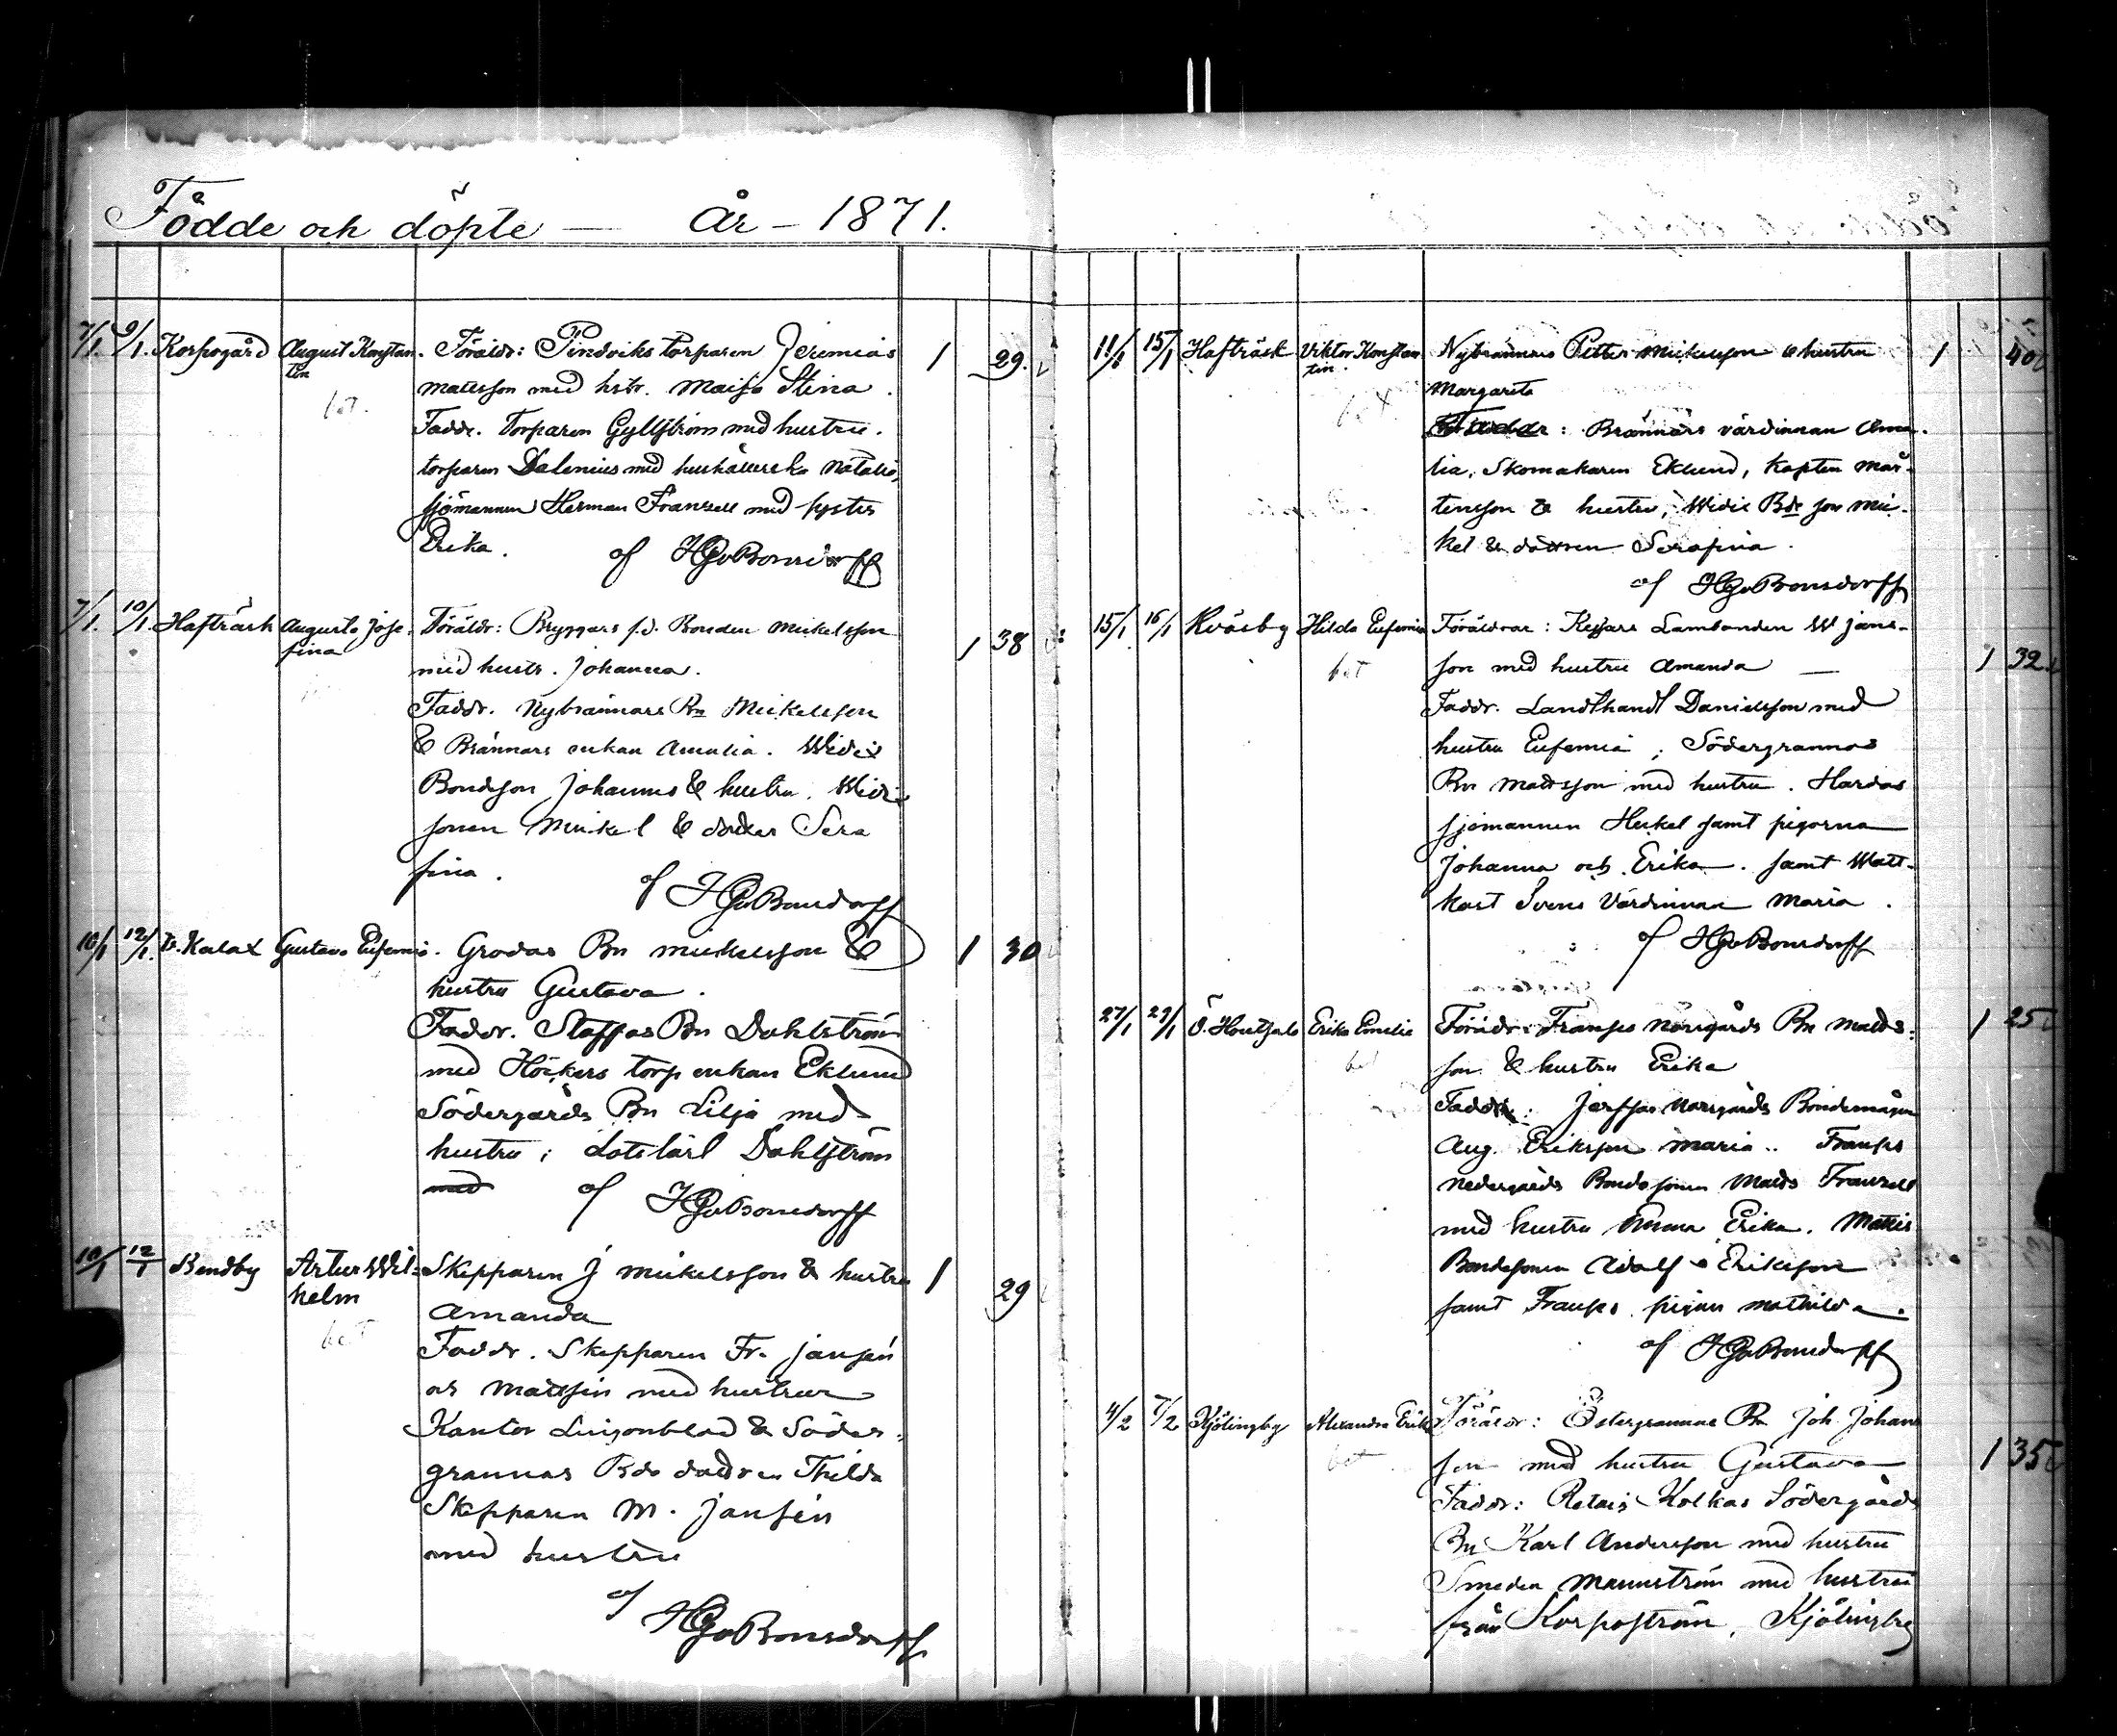 Födde och döpte — År – 1871.
7/1. 9/1. Korpogård August Konstan- Föräldr: Pindviks torparen Jeremias 1 29.
tin mattsson med hstr. Maija Stina.
bet. Faddr. Torparen Gyllström med hustru.
torparen Dalenius med hushållerska Natalia,
sjömannen Herman Franzell med syster
Erika. af HGvBonsdorff
7/1. 10/1. Hafträsk Augusta Jose- Föräldr: Bryggars f.d. Bonden Mickelsson 1 38
fina med hustr. Johanna.
Faddr. Nybrännars Bn Mickelsson
& Brännars enkan Amalia. Widix
Bondeson Johannes & hustru. Widix
sonen Mickel & dotter Sera
fina. af HGvBonsdorff
10/1 12/1. Kalax Gustava Eufemia. Grodas Bn mickelsson & 1 30
hustru Gustava.
Faddr. Staffas Bn Dahlström
med Höckers torp enkan Eklund
Södergårds Bn Lilja med
hustru; Dahlström
med af HGvBonsdorff
10/1 12/1 Bendby Artur Wil- Skepparen J mickelsson & hustru 1 29
helm Amanda
bet Faddr. Skepparen Fr. jansén
och mattsén med hustrur
Kantor Lingonblad & Söder-
grannas Bds dottren Thilda
Skepparen M. jansén
med hustru
af HGvBonsdorff
11/1 15/1 Hafträsk Viktor Konstan Nybrännars Petter Mickelsson & hustru 1 40
tin. Margareta
bet Faddr: Brännärs värdinnan Ama-
lia, Skomakaren Eklund, Kapten Mår-
tensson & hustru, Widix Bds son Mic-
kel & dottren Serafina.
af HGvBonsdorff
15/1. 16/1 Hilda Eufemia Föräldrar: Lambonden W jans-
bet son med hustru Amanda — 1 32
Faddr. Landthandl Danielsson med
hustru Eufemia; Södergrannas
Bn mattsson med hustru. Hardas
sjömannen Heikel samt pigorna
Johanna och Erika. samt Matt-
Svens Värdinnan Maria.
af HGvBonsdorff
27/1 29/1 Ö. Houtsala Erika Emelia Föräldr: Franses Norrgårds Bn Matts- 1 25
bet son & hustru Erika
Faddr: Norrgårds Bondemågen
Aug. Eriksson Maria.. Franses
Nedergårds Bondesonen Matts Franzell
med hustru Emma Erika.
Bondesonen Adolf Eriksson
samt Franses pigan Mathilda.
af HGvBonsdorff
4/2 7/2 Kjölingby Alexandra Erika Föräldr: Östergrannas Bn Joh. Johans
bet son med hustru Gustava 1 35
Faddr: Retais Kolkas Södergårds
Bn Karl Andersson med hustru
Smeden Mannström med hustru
från Korpoström, Kjölingby